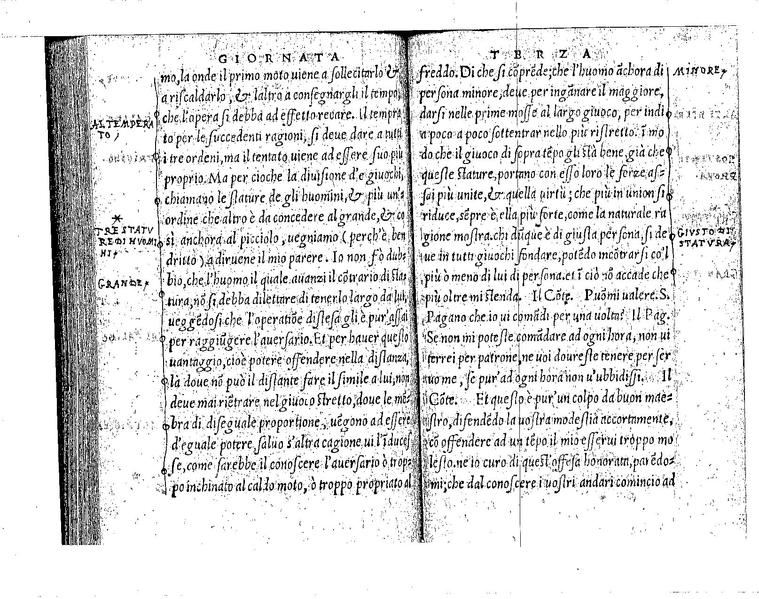 GIORNATA
mo, la onde il primo moto viene a sollecitarlo &
a riscaldarlo, & laltro a consegnargli il tempo,
che l'opera si debba ad effetto recare. Il tempra
to per le succedenti ragioni, si deve dare a tutti
i tre ordeni, ma il tentato viene ad essere suo più
proprio. Ma per cioche la divisione d'e giuochi,
chiamano le stature de gli huomini, & più un'
ordine che altro è da concedere al grande, & co
sì anchora al picciolo, vegniamo (perch'è ben
dritto) a dirvene il mio parere. Io non fò dub
bio, che l'huomo il quale avanzi il cōtrario di sta
tura, nō si debba dilettare di tenerlo largo da lui,
veggēdosi che l'operatiōe distesa gli è pur assai
per raggiūgere l'aversario. Et per haver questo
vantaggio, cioè potere offendere nella distanza,
là dove nō può il distante fare il simile a lui, non
deve mai rietrare nel giuoco stretto, dove le mē
bra di diseguale proportione, vēgono ad essere
d'eguale potere, salvo s'altra cagione vi l'induces
se, come sarebbe il conoscere l'aversario ò trop
po inchinato al caldo moto, ò troppo propriato al
AL TEMPERA
TO,
*
TRE STATU
RE DI HUOMI
NI,
GRANDE,
TERZA
freddo. Di che si cōprēde; che l'huomo āchora di
persona minore, deve per ingānare il maggiore,
darsi nelle prime mosse al largo giuoco, per indi
a poco a poco sottentrar nello più ristretto. i mo
do che il giuoco di sopra tēpo gli stà bene, già che
queste stature, portano con esso loro le forze as-
sai più unite, & quella virtù; che più in union si
riduce, sēpre è ella più forte, come la naturale ra
gione mostra. chi dūque è di giusta persona, si de
ve in tutti giuochi fondare, potēdo incōtrarsi co'l
più ò meno di lui di persona. et ī ciò nō accade che
più oltre mi stenda. Il Cōte. Puōmi valere. S.
Pagano che io vi comādi per una volta? Il Pag.
Se non mi poteste comādare ad ogni hora, non vi
terrei per patrone, ne voi doureste tenere per ser
uo me, se pur ad ogni hora non v'ubbidissi. Il
Cōte. Et questo è pur un colpo da buon mae-
stro, difendēdo la vostra modestia accortamente,
cō offendere ad un tēpo il mio esservi troppo mo
lesto. ne io curo di quest'offesa honorata, parēdo-
mi; che dal conoscere i vostri andari comincio ad
MINORE,
GIUSTO DI
STATURA,